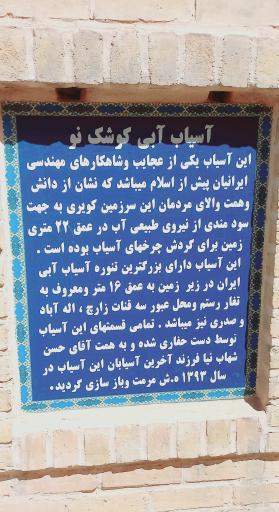 آسیاب آبی کوشک نو
این آسیاب یکی از عجایب وشاهکارهای مهندسی
ایرانیان پیش از اسلام میباشد که نشان از دانش
وهمت والای مردمان این سرزمین کویری به جهت
سود مندی از نیروی طبیعی آب در عمق ۲۲ متری
زمین برای گردش چرخهای آسیاب بوده است .
این آسیاب دارای بزرگترین تنوره آسیاب آبی
ایران در زیر زمین به عمق ۱۶ متر ومعروف به
تغار رستم ومحل عبور سه قنات زارچ ، اله آباد
و صدری نیز میباشد . تمامی قسمتهای این آسیاب
توسط دست حفاری شده و به همت آقای حسن
شهاب نیا فرزند آخرین آسیابان این آسیاب در
سال ۱۳۹۳ ه.ش مرمت وباز سازی گردید.